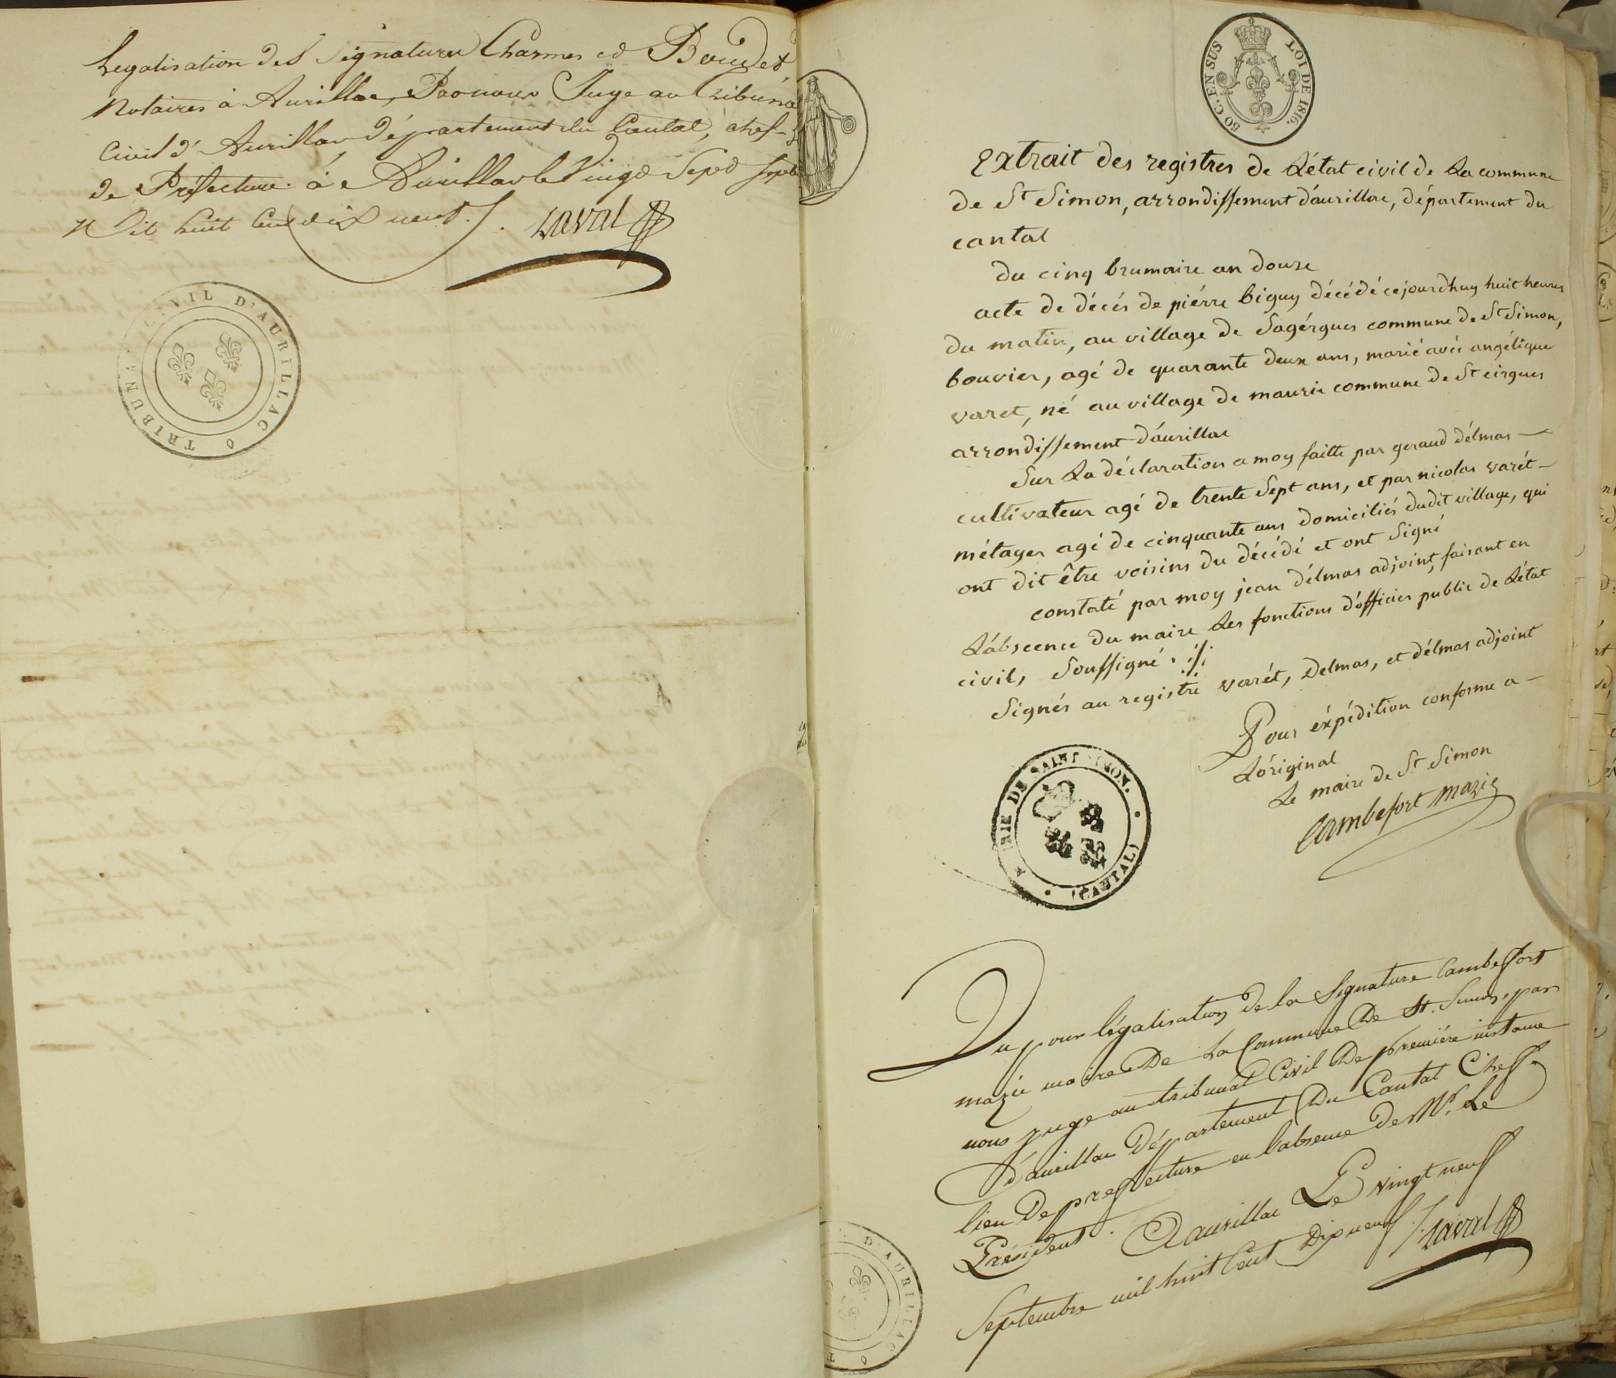 Legalisation des signatures Charmes et Boudet
Notaires à Aurillac, Juge au tribunal
Civil d'Aurillac département du Cantal, chef-
de Préfecture. à Aurillac le vingt Sept
Mil huit Cent dix neuf. Laval
CIVIL D'AURILLAC
50 C. EN SUS LOI DE 1816.
Extrait des registres de L'état civil de La commune
de St Simon, arrondissement d'aurillac, département du
cantal
du cinq brumaire an douze
acte de décés de piérre biguy décédé cejourdhuy huit heures
du matin, au village de Sagérgues commune de St Simon,
bouvier, agé de quarante deux ans, marié avéc angélique
varet, né au village de maurie commune de St cirgues
arrondissement d'aurillac
Sur La déclaration a moy faitte par geraud délmas
cultivateur agé de trente Sept ans, et par nicolas varét
métager agé de cinquante ans domiciliés dudit village, qui
ont dit être voisins du décédé et ont Signé
constaté par moy jean délmas adjoint, faisant en
L'abscence du maire Les fonctions d'officier public de L'état
civil, Soussigné
Signés au registre varét, Delmas, et délmas adjoint
Pour éxpédition conforme a
L'original
Le maire de St Simon
Cambefort mazic
MAIRIE DE SAINT SIMON. (CANTAL)
Vu pour légalisation de la Signature Cambefort
mazic maire De La Commune De St. Simon, par
nous juge au tribunal Civil De première instance
d'aurillac Département Du Cantal Chef
lieu De prefecture en l'absence De Mr. Le
Président. A aurillac Le vingt neuf
Septembre mil huit Cent Dix neuf. Laval
D'AURILLAC